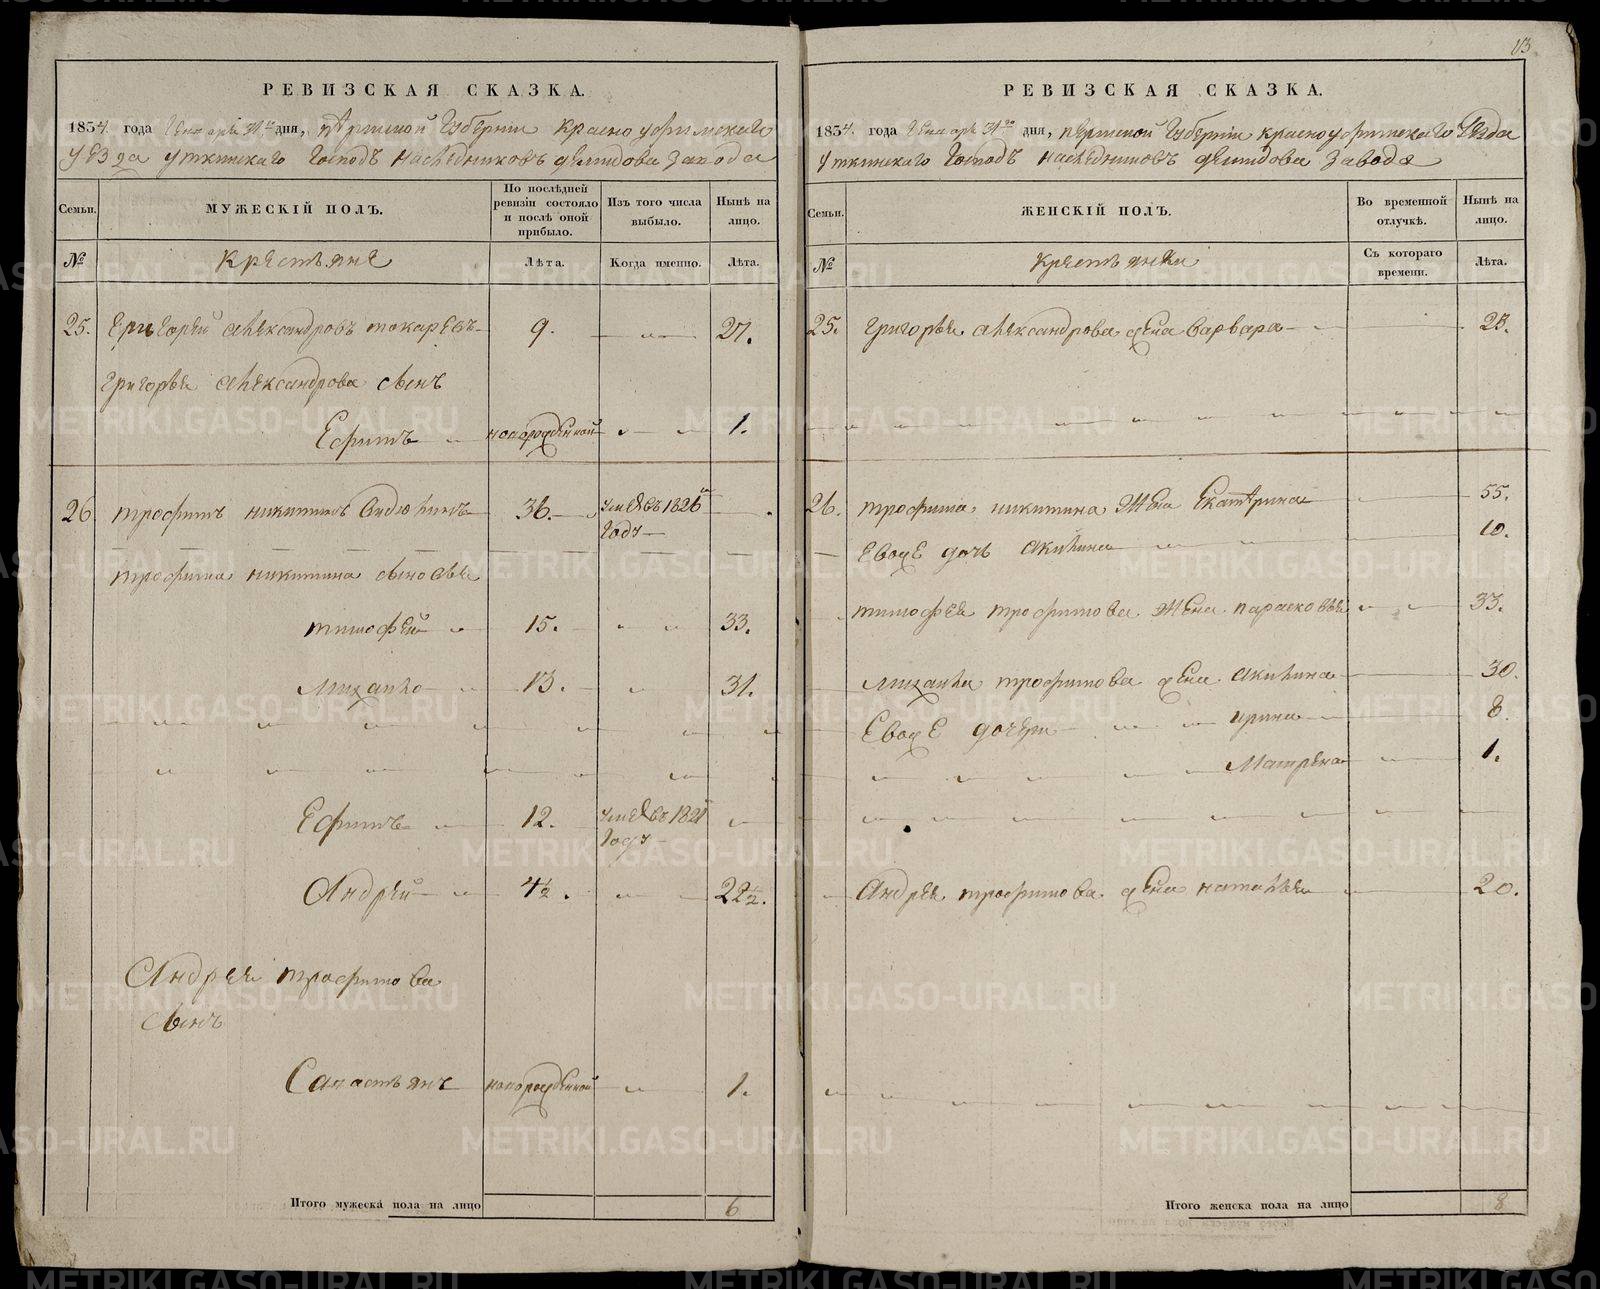 13
РЕВИЗСКАЯ СКАЗКА.
1834. года Генваря 31го дня, Пермской Губернии Красноуфимскаго
Уезда Уткинскаго Господъ Наследниковъ Демидова Завода
Семьи.
МУЖЕСКІЙ ПОЛЪ.
По послѣдней ревизіи состояло и послѣ оной прибыло.
Изъ того числа выбыло.
Нынѣ на лицо.
№
Крестьяне
Лѣта.
Когда именно.
Лѣта.
25. Григорей Александровъ Токаревъ 9. 27.
Григорья Александрова сынъ
Ефимъ новорожденной 1.
26 Трофимъ Никитинъ 36. умре въ 1826
году
Трофима Никитина сыновья
Тимофей 15. 33.
Михайло 13. 31.
Ефимъ 12. умре въ 1821
году
Андрей 4½. 22½.
Андрея Трофимова
сынъ
Савастьянъ новорожденной 1.
Итого мужеска пола на лицо 6
РЕВИЗСКАЯ СКАЗКА.
1834. года Генваря 31го дня, Пермской Губернии Красноуфимскаго Уезда
Уткинскаго Господъ Наследниковъ Демидова Завода
Семьи.
ЖЕНСКІЙ ПОЛЪ.
Во временной отлучкѣ.
Нынѣ на лицо.
№
Крестьянки
Съ котораго времени.
Лѣта.
25. Григорья Александрова жена Варвара 23.
26. Трофима Никитина жена Екатерина 55.
Евоже дочь Акилина 10.
Тимофея Трофимова жена Парасковья 33.
Михайла Трофимова жена Акилина 30.
Евоже дочери Ирина 8.
Матрена 1.
Андрея Трофимова жена Наталья 20.
Итого женска пола на лицо 8
METRIKI.GASO-URAL.RU